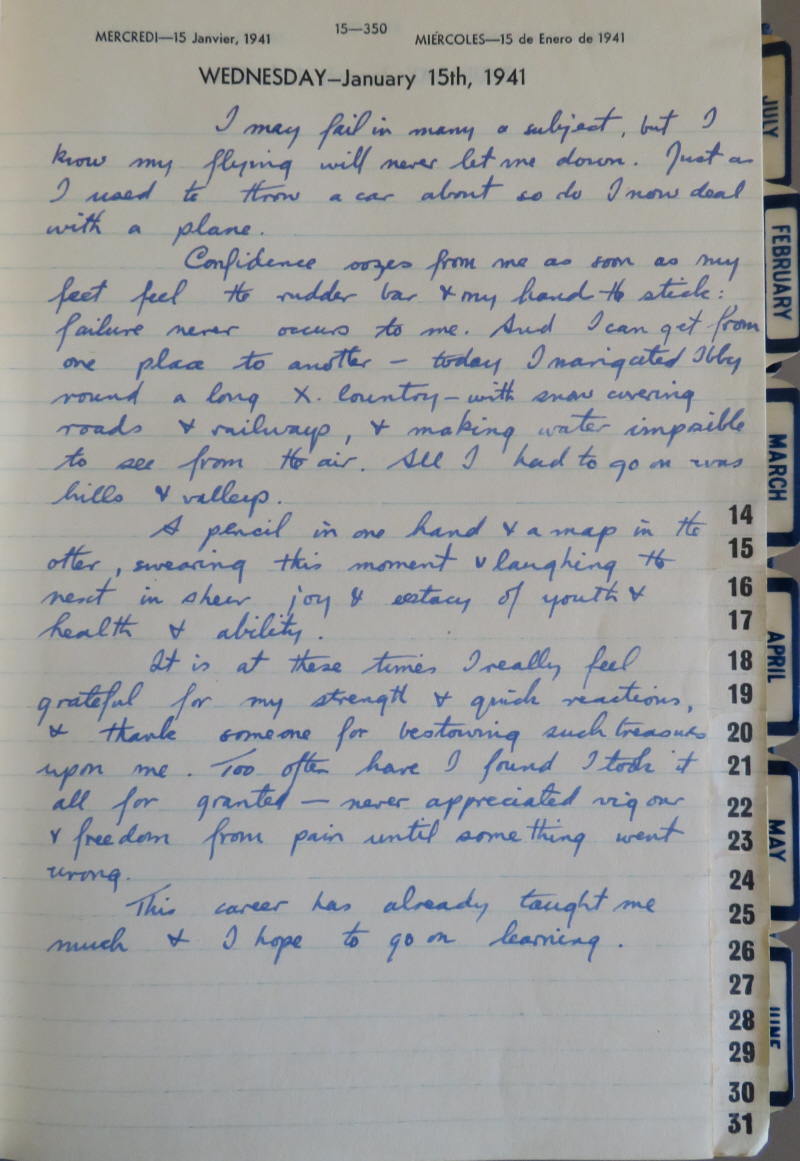 15—350
MERCREDI—15 Janvier, 1941
MIÉRCOLES—15 de Enero de 1941
WEDNESDAY—January 15th, 1941
I may fail in many a subject, but I
know my flying will never let me down. Just as
I used to throw a car about so do I now deal
with a plane.
Confidence oozes from me as soon as my
feet feel the rudder bar & my hand the stick:
failure never occurs to me. And I can get from
one place to another – today I navigated Ibby
round a long X. Country – with snow covering
roads & railways, & making water impossible
to see from the air. All I had to go on was
hills & valleys.
A pencil in one hand & a map in the
other, swearing this moment & laughing the
next in sheer joy & estacy of youth &
health & ability.
It is at these times I really feel
grateful for my strength & quick reactions,
& thank someone for bestowing such treasures
upon me. Too often have I found I took it
all for granted — never appreciated vigour
& freedom from pain until something went
wrong.
This career has already taught me
much & I hope to go on learning.
JULY
FEBRUARY
MARCH
APRIL
MAY
JUNE
14
15
16
17
18
19
20
21
22
23
24
25
26
27
28
29
30
31